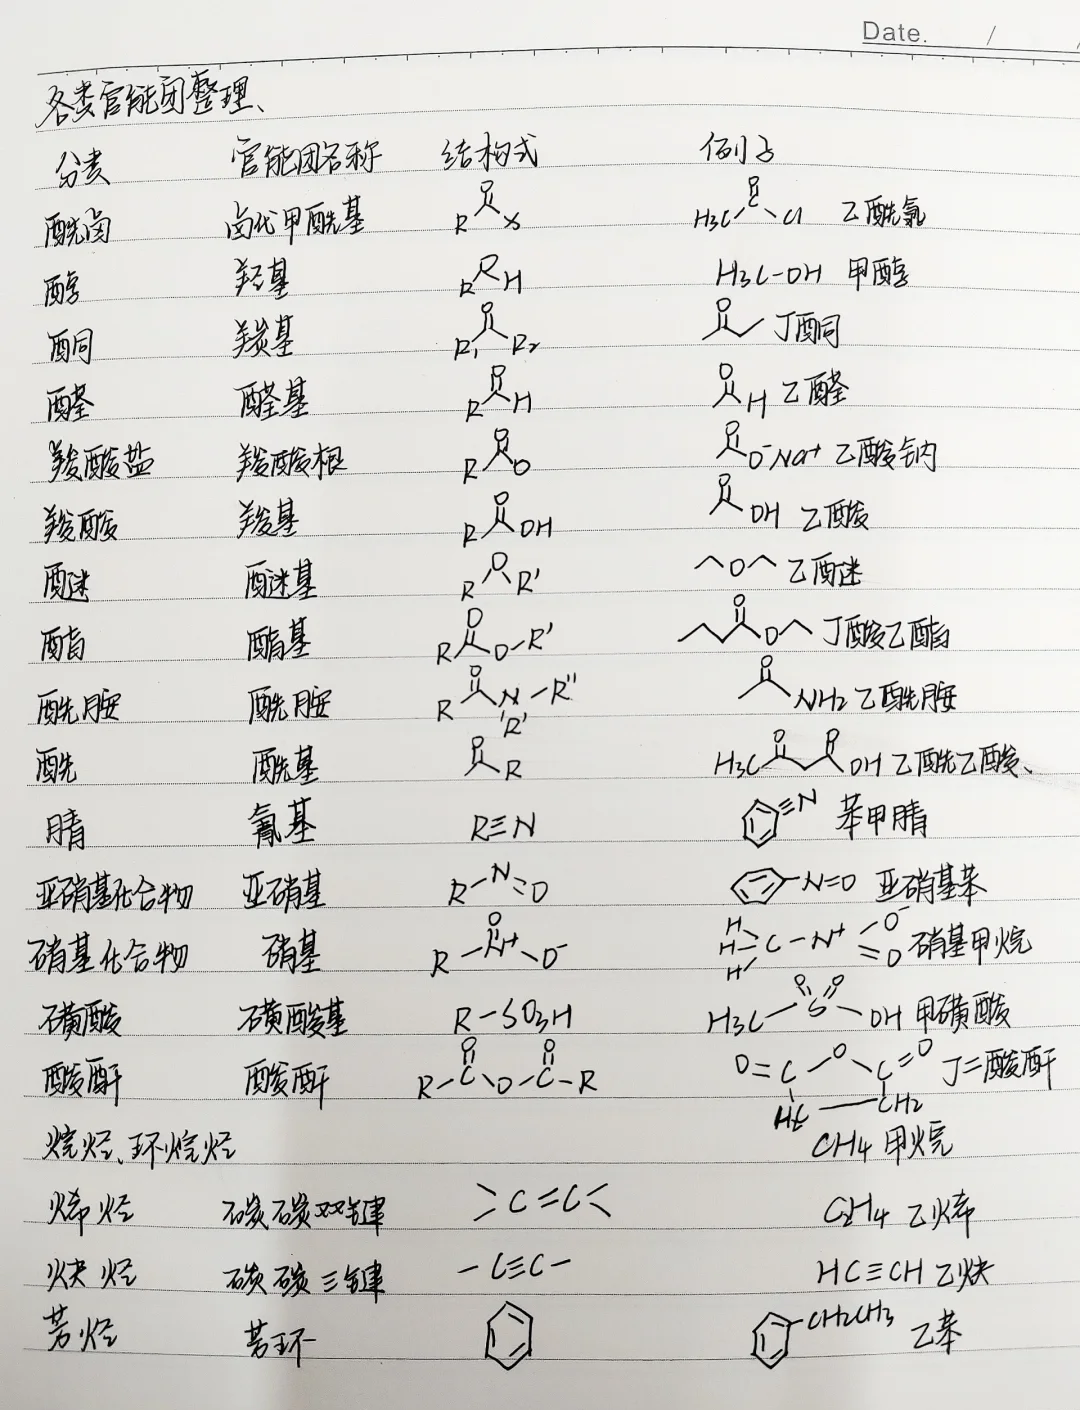 Date. / /
各类官能团整理、
分类 官能团名称 结构式 例子
酰卤 卤代甲酰基 R O X H3C O Cl 乙酰氯
醇 羟基 R O H H3C-OH 甲醇
酮 羰基 R1 O R2 O 丁酮
醛 醛基 R O H O H 乙醛
羧酸盐 羧酸根 R O O O O⁻Na⁺ 乙酸钠
羧酸 羧基 R O OH O OH 乙酸
醚 醚基 R O R' O 乙醚
酯 酯基 R O O-R' O O 丁酸乙酯
酰胺 酰胺 R O N-R'' R' O NH2 乙酰胺
酰 酰基 O R H3C O O OH 乙酰乙酸、
腈 氰基 R≡N ≡N 苯甲腈
亚硝基化合物 亚硝基 R-N=O -N=O 亚硝基苯
硝基化合物 硝基 R O N⁺ O⁻ H H H C-N⁺ O⁻ =O 硝基甲烷
磺酸 磺酸基 R-SO3H H3C O S O OH 甲磺酸
酸酐 酸酐 R-C O O C-R O O=C O C=O HC CH2 丁二酸酐
烷烃、环烷烃 CH4 甲烷
烯烃 碳碳双键 >C=C< C2H4 乙烯
炔烃 碳碳三键 -C≡C- HC≡CH 乙炔
芳烃 芳环 CH2CH3 乙苯